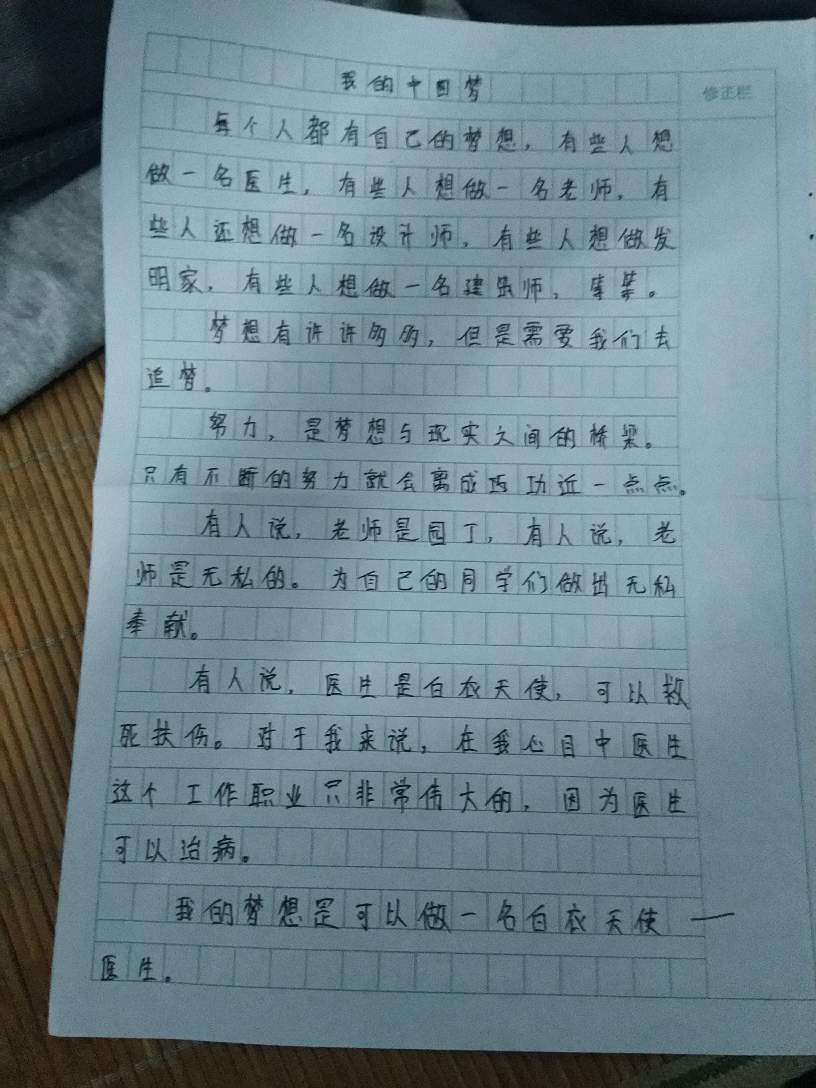 我的中国梦
修正栏
每个人都有自己的梦想，有些人想
做一名医生，有些人想做一名老师，有
些人还想做一名设计师，有些人想做发
明家，有些人想做一名建筑师，等等。
梦想有许许多多，但是需要我们去
追梦。
努力，是梦想与现实之间的桥梁。
只有不断的努力就会离成功近一点点。
有人说，老师是园丁，有人说，老
师是无私的。为自己的同学们做出无私
奉献。
有人说，医生是白衣天使，可以救
死扶伤。对于我来说，在我心目中医生
这个工作职业只非常伟大的，因为医生
可以治病。
我的梦想是可以做一名白衣天使—
医生。